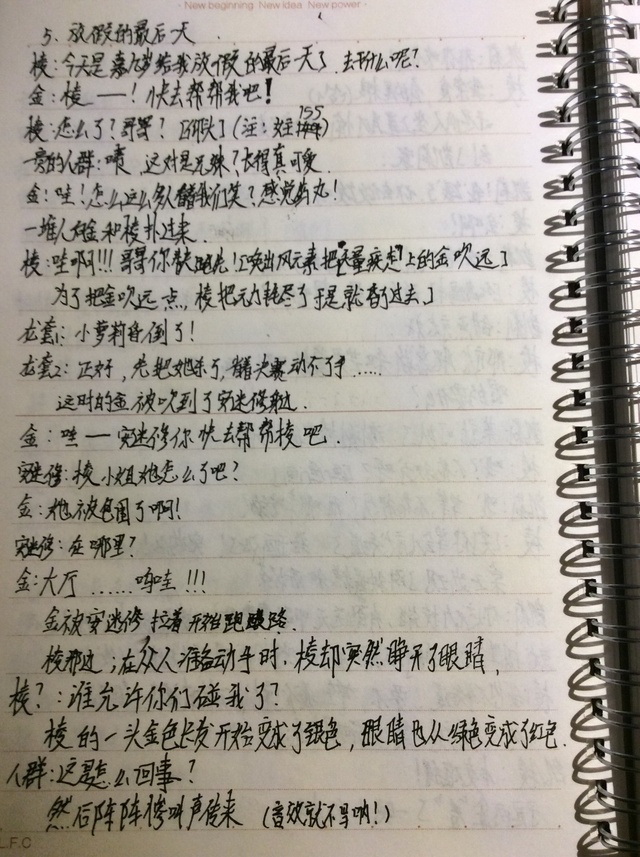 New beginning New idea New power
5、放假的最后一天
棱:今天是嘉几岁给我放假的最后一天了,去干什么呢?
金:棱——!快去帮帮我吧!
棱:怎么了?哥哥?[歪头](注:女主155)
旁的人群:啧,这对是兄妹?长得真可爱
金:哇!怎么这么多人看着我们笑?感觉药丸!
一堆人向金和棱扑过来.
棱:哇啊!!!哥哥你快跑先![唤出风元素把"矢量疾走"上的金吹远]
为了把金吹远点,棱把元力耗尽了于是就昏了过去]
龙套1:小萝莉昏倒了!
龙套2:正好,先把她杀了,省着决赛动不了手……
这时的金被吹到了安迷修身边.
金:哇——安迷修你快去帮帮棱吧.
安迷修:棱小姐她怎么了吧?
金:她被包围了啊!
安迷修:在哪里?
金:大厅……呜哇!!!
金被安迷修拉着开始跑
棱那边:在众人准备动手时,棱却突然睁开了眼睛,
棱?:谁允许你们碰我了?
棱的一头金色长发开始变成了银色,眼睛也从绿色变成了红色.
人群:这是怎么回事?
然后阵阵惨叫声传来(音效就不写呐!)
L.F.C